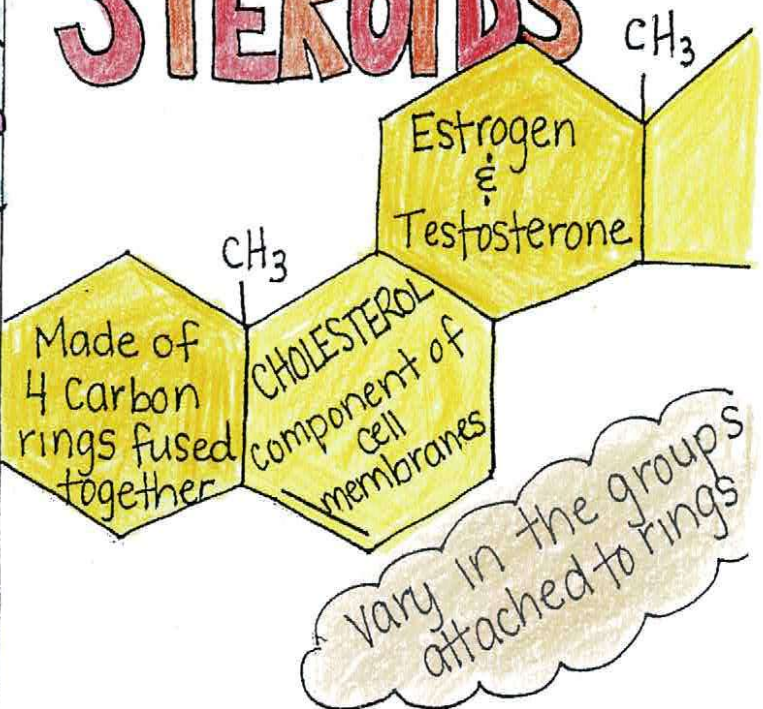 STEROIDS
CH3
Estrogen
&
Testosterone
CH3
Made of
4 Carbon
rings fused
together
CHOLESTEROL
component of
cell
membranes
vary in the groups
attached to rings